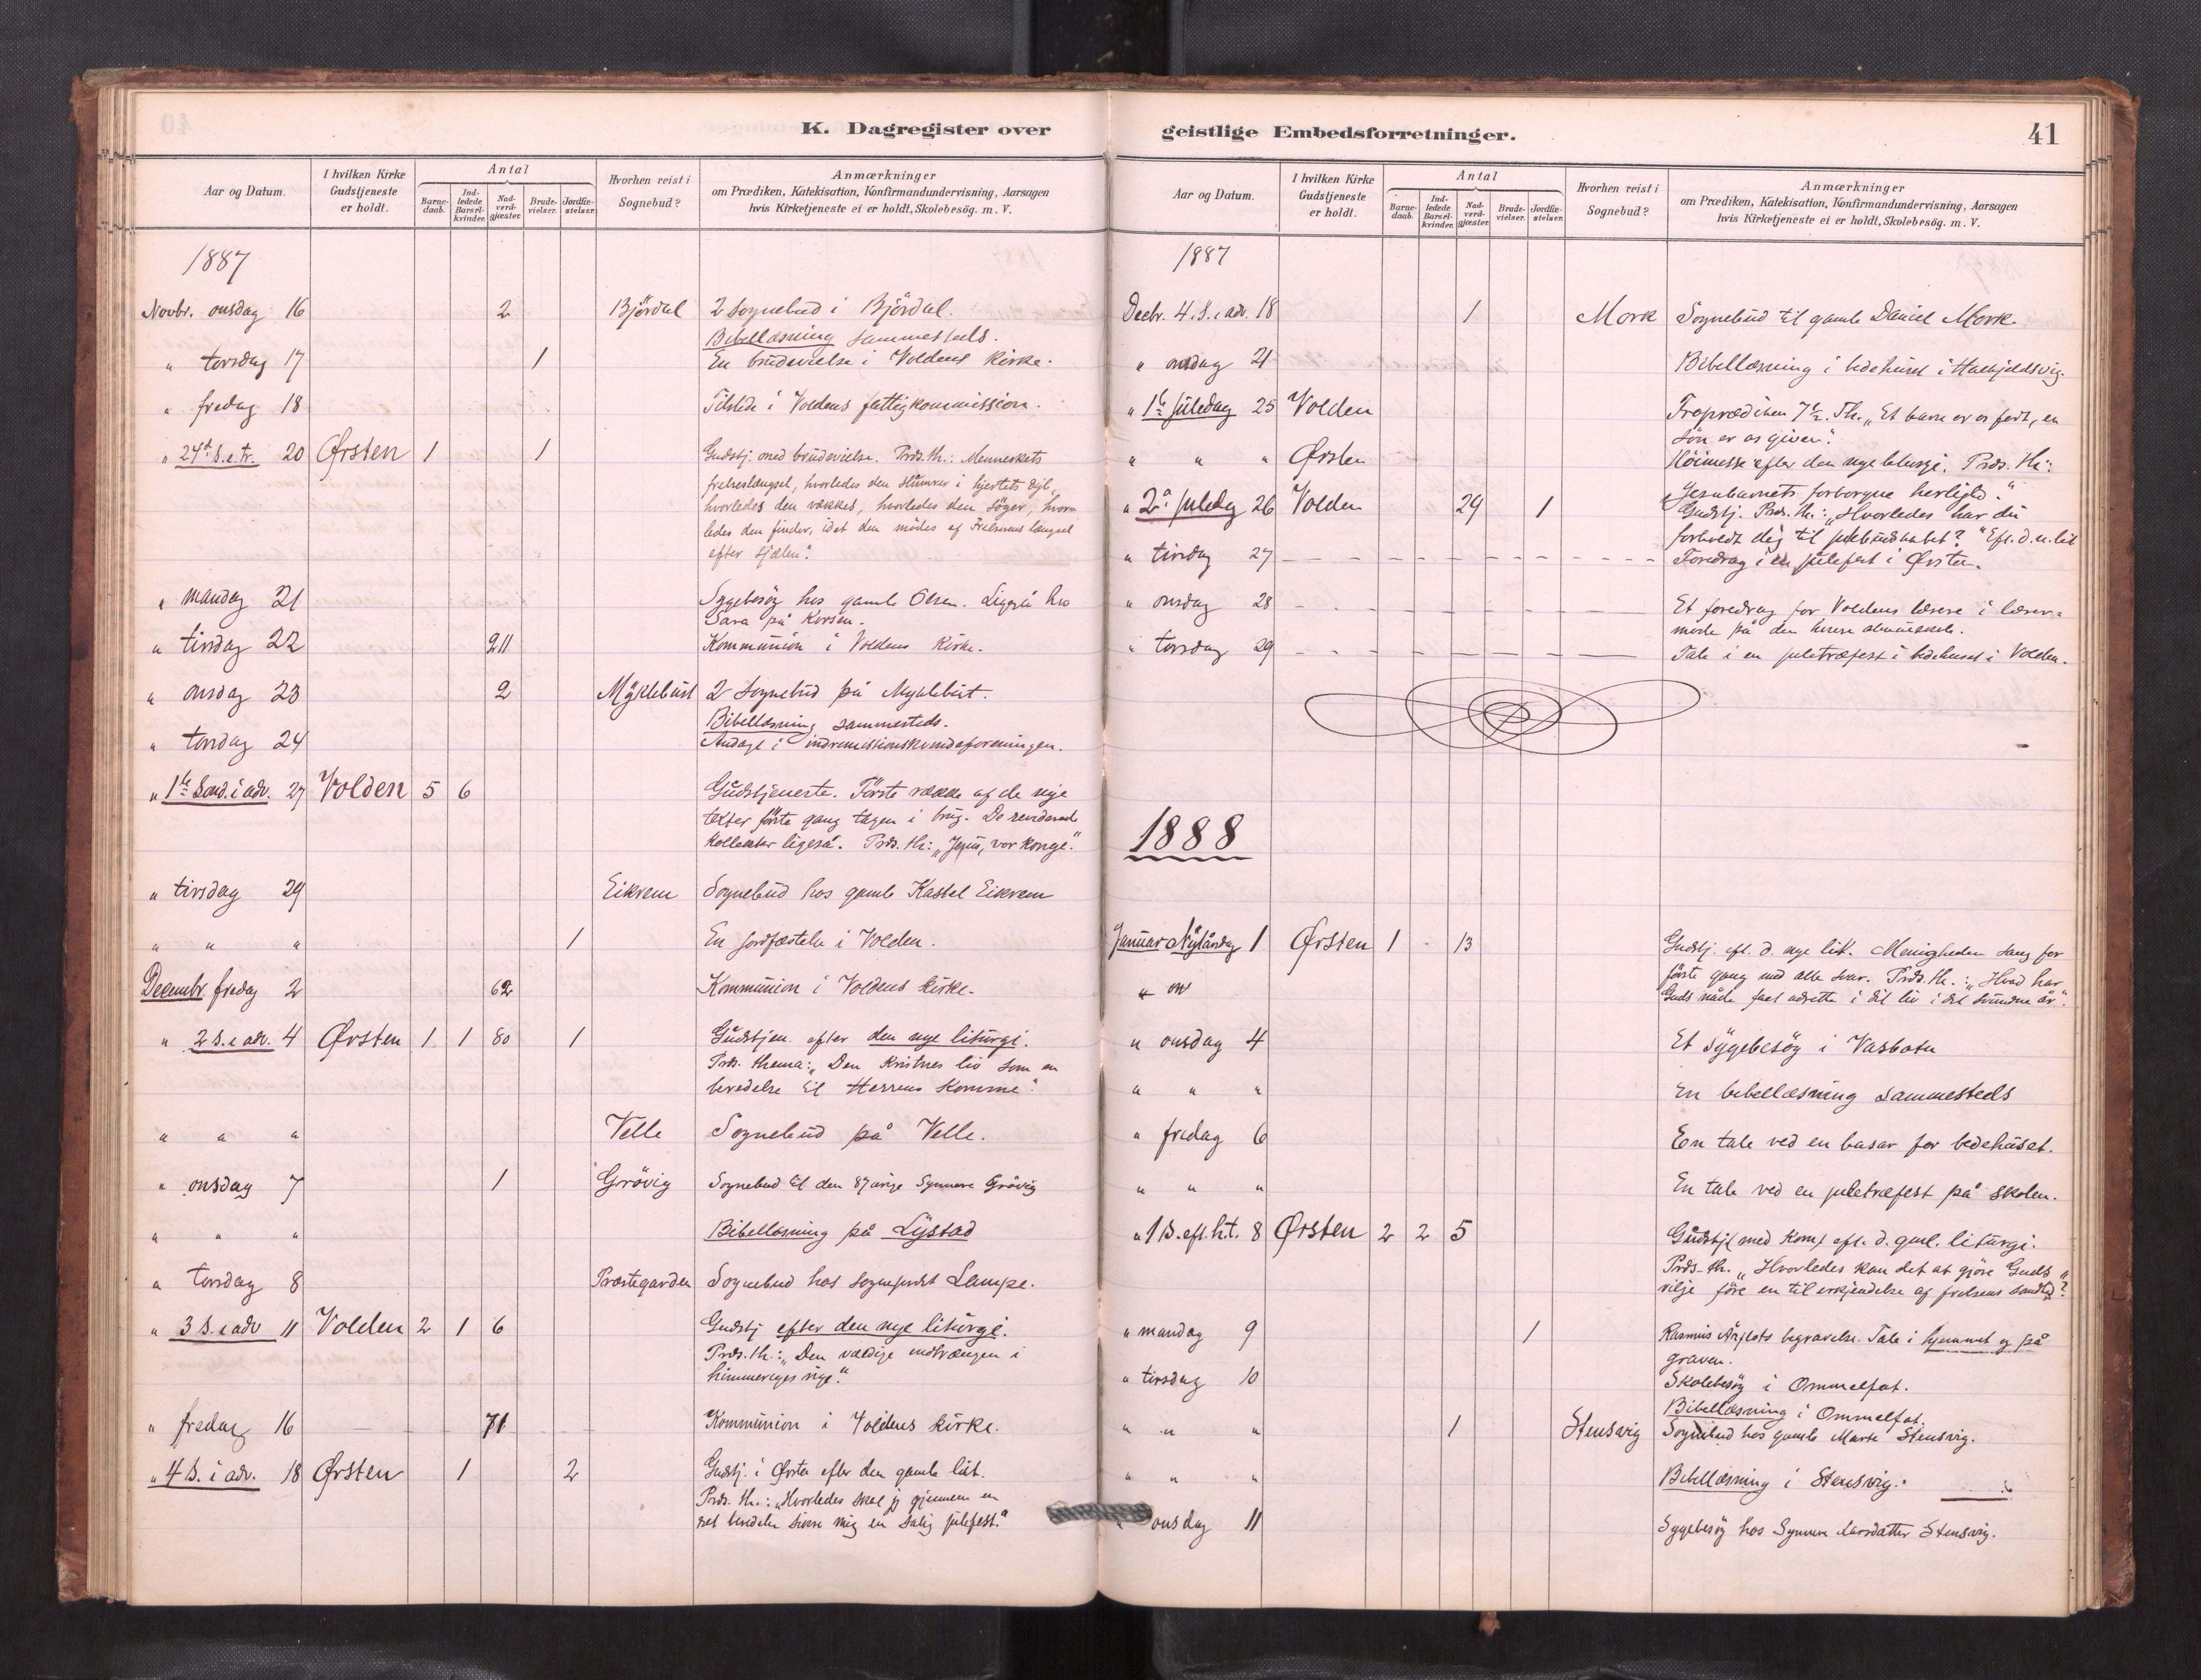 K. Dagregister over
Aar og Datum.
I hvilken Kirke
Gudstjeneste
er holdt.
Antal
Barne-
daab.
Ind-
ledede
Barsel-
kvinder.
Nad-
verd-
gjæster.
Brude-
vielser.
Jordfæ-
stelser.
Hvorhen reist i
Sognebud?
Anmærkninger
om Prædiken, Katekisation, Konfirmandundervisning, Aarsagen
hvis Kirketjeneste ei er holdt, Skolebesög. m. V.
1887
Novbr. onsdag 16 2 Björdal 2 sognebud i Björdal.
Bibellæsning sammesteds.
" torsdag 17 1 En brudevielse i Voldens kirke.
" fredag 18 Tilstede i Voldens fattigkommission.
" 24d S. e. tr. 20 Ørsten 1 1 Gudstj. med brudevielse. Præd. th.: Menneskets
frelseslængsel, hvorledes den slumrer i hjertets dyb,
hvorledes den vækkes, hvorledes den söger, hvor-
ledes den finder, idet den mödes af Frelserens længsel
efter sjælen".
" mandag 21 Sygebesög hos gamle Olsen. Ligeså hos
Sara på Korsen.
" tirsdag 22 211 Kommunion i Voldens kirke.
" onsdag 23 2 Myklebust 2 sognebud på Myklebust.
Bibellæsning sammesteds.
" torsdag 24 Andagt i indremissionskvindeforeningen.
" 1ste Sönd. i adv. 27 Volden 5 6 Gudstjeneste. Förste række af de nye
texter förste gang tagen i brug. De reviderede
kollekter ligeså. Præd. th: "Jesus, vor konge."
" tirsdag 29 Eikrem Sognebud hos gamle Kastel Eikrem
" " " 1 En jordfæstelse i Volden.
Decembr. fredag 2 62 Kommunion i Voldens kirke.
" 2 S. i adv. 4 Ørsten 1 1 80 1 Gudstjen. efter den nye liturgi.
Præd. thema: "Den kristnes liv som en
beredelse til Herrens komme".
" " " Velle Sognebud på Velle.
" onsdag 7 1 Grövig Sognebud til den 87 årige Synneve Grövig
" " " Bibellæsning på Lystad
" torsdag 8 Præstegarden Sognebud hos sogneprest Lampe.
" 3 S. i adv 11 Volden 2 1 6 Gudstj efter den nye liturgi.
Præd. th.: "Den vældige indtrængen i
himmeriges rige."
" fredag 16 71 Kommunion i Voldens kirke.
" 4 S. i adv. 18 Ørsten 1 2 Gudstj. i Ørsten efter den gamle lit.
Præd. th.: "Hvorledes skal jeg gjennem en
ret beredelse sikre mig en salig julefest."
geistlige Embedsforretninger.
41
Aar og Datum.
I hvilken Kirke
Gudstjeneste
er holdt.
Antal
Barne-
daab.
Ind-
ledede
Barsel-
kvinder.
Nad-
verd-
gjæster.
Brude-
vielser.
Jordfæ-
stelser.
Hvorhen reist i
Sognebud?
Anmærkninger
om Prædiken, Katekisation, Konfirmandundervisning, Aarsagen
hvis Kirketjeneste ei er holdt, Skolebesög. m. V.
1887
Decbr. 4. S. i adv. 18 1 Mork Sognebud til gamle Daniel Mork.
" onsdag 21 Bibellæsning i bedehuset i Halkjeldsvig.
" 1ste juledag 25 Volden Froprædiken 7 1/2. Th. "Et barn er os født, en
sön er os given".
" " " Ørsten Höimesse efter den nye liturgi. Præd. th:
"Jesubarnets forborgne herlighed."
" 2den juledag 26 Volden 29 1 Gudstj. Præd. th.: "Hvorledes har du
forholdt dig til julebudskabet?" Eft. d. n. lit
" tirsdag 27 Foredrag i en julefest i Ørsten.
" onsdag 28 Et foredrag for Voldens lærere i lærer-
möde på den höiere almueskole.
" torsdag 29 Tale i en juletræfest i bedehuset i Volden.
1888
Januar Nytårsdag 1 Ørsten 1 - 13 Gudstj. eft. d. nye lit. Menigheden sang for
förste gang med alle svar. Præd. th.: "Hvad har
Guds nåde faet udrette i dit liv i det svundne år".
" on
" onsdag 4 Et sygebesög i Vasbotn
" " " En bibellæsning sammesteds
" fredag 6 En tale ved en basar for bedehuset.
" " " En tale ved en juletræfest på skolen.
" 1 S. eft. h. t. 8 Ørsten 2 2 5 Gudstj. (med kom) eft. d. gml. liturgi.
Præd. th. "Hvorledes kan det at gjöre Guds
vilje före en til erkjendelse af frelsens sandhed"?
" mandag 9 1 Rasmus Årflots begravelse. Tale i hjemmet og på
graven.
" tirsdag 10 Skolebesög i Ommelfot.
Bibellæsning i Ommelfot.
" " " 1 Stensvig Sognebud hos gamle Marte Stensvig.
" " " Bibellæsning i Stensvig.
" onsdag 11 Sygebesög hos Synneve Larsdatter Stensvig.